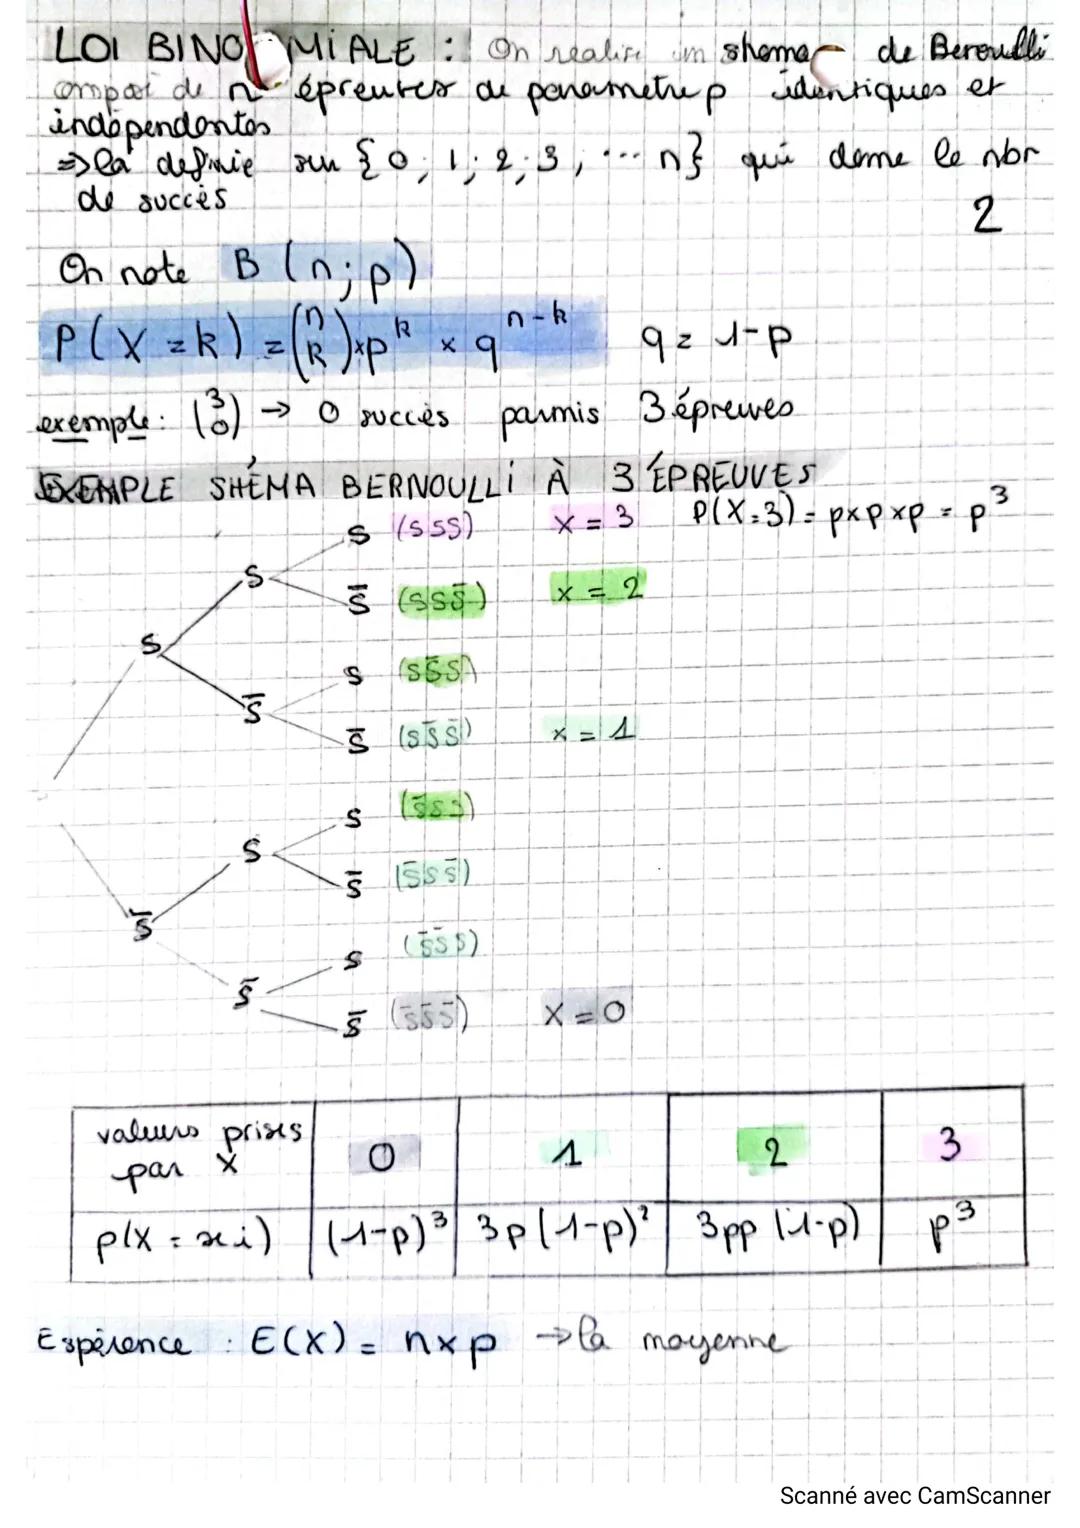 LOI BINOMIALE : On réalise un shema de Beroulli
composé de n épreuves de paramètre p identiques et
indépendantes
⇒ la définie sur {0; 1; 2; 3; ... n} qui donne le nbr
de succès
2
On note B (n; p)
P(X = k) = (n k) × p^k × q^(n-k) q = 1-p
exemple : (3 0) → 0 succès parmis 3 épreuves
EXEMPLE SHÉMA BERNOULLI À 3 ÉPREUVES
S (SSS) X = 3 P(X=3) = p×p×p = p³
S
S̅ (SSS̅) X = 2
S
S (SS̅S)
S̅
S̅ (SS̅S̅) X = 1
S (S̅SS)
S
S̅ (S̅SS̅)
S̅
S (S̅S̅S)
S̅
S̅ (S̅S̅S̅) X = 0
valeurs prises par X 0 1 2 3
p(X = xi) (1-p)³ 3p(1-p)² 3pp(1-p) p³
Espérence : E(X) = n×p → la moyenne
Scanné avec CamScanner